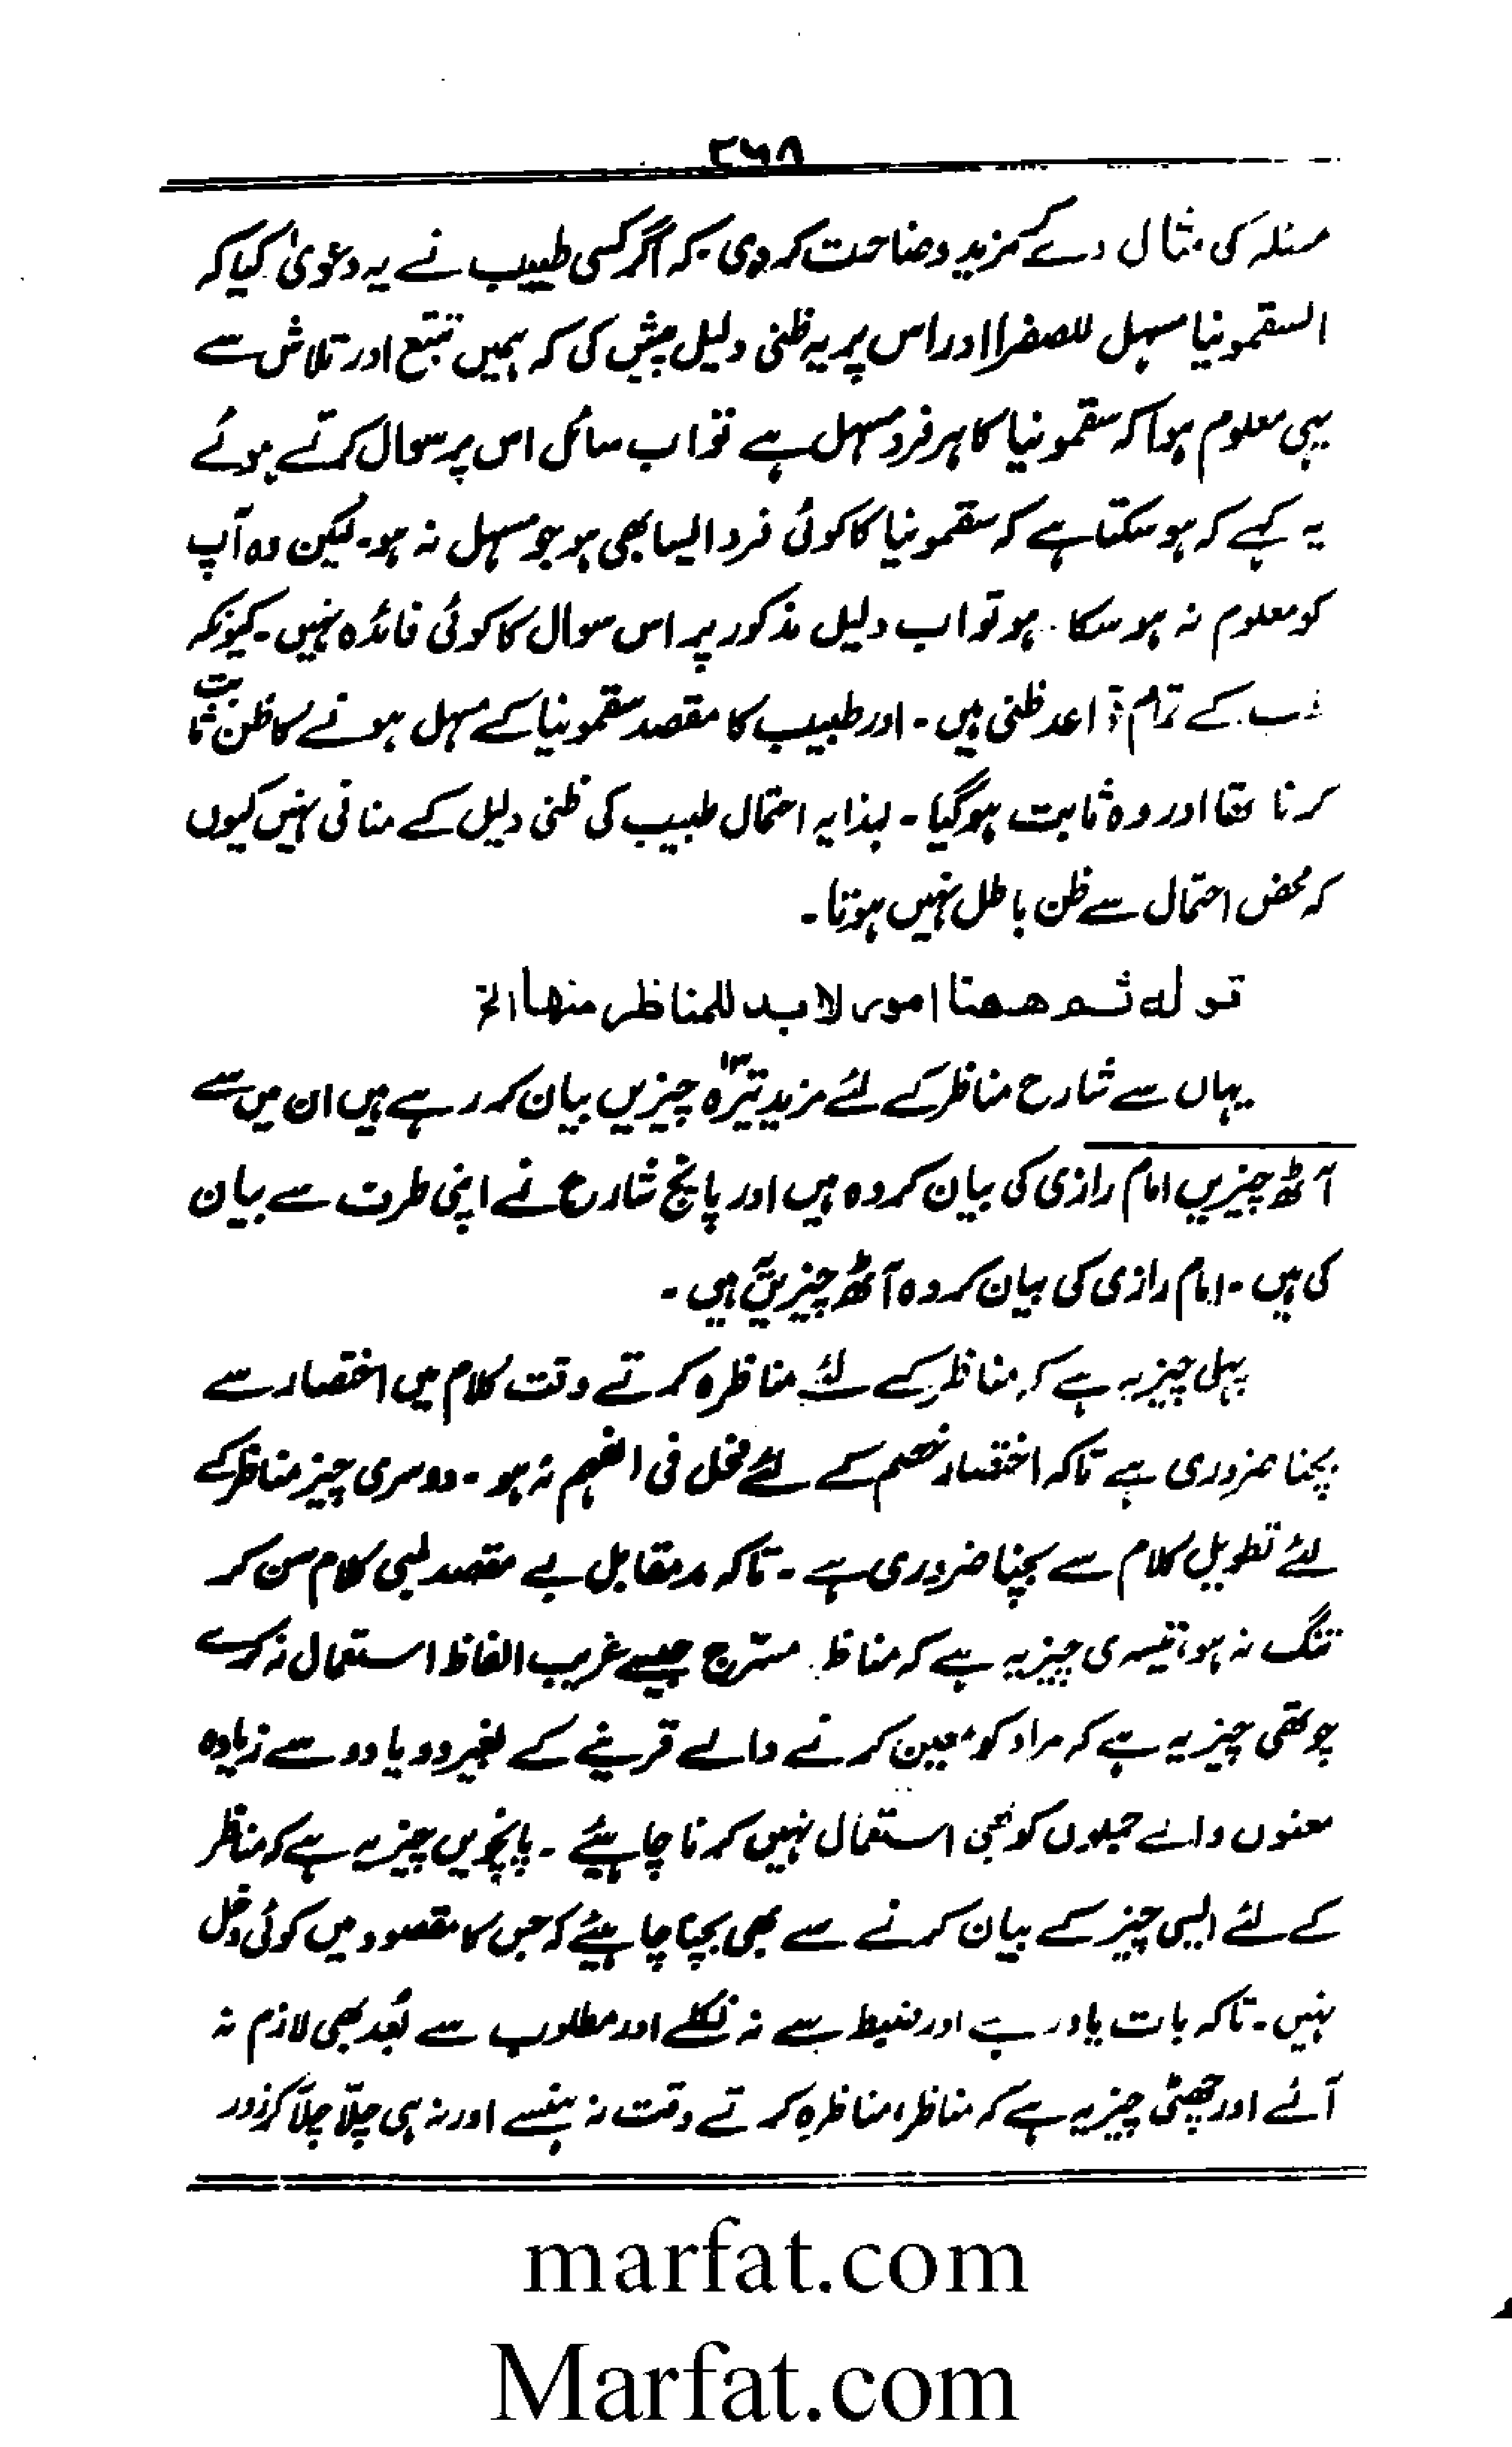 ۲۶۸
مسئلہ کی مثال دے کے مزید وضاحت کر دی۔ کہ اگر کسی طبیب نے یہ دعویٰ کیا کہ
السقمونیا مسہل للصفرا اور اس پر یہ ظنی دلیل پیش کی کہ ہمیں تتبع اور تلاش سے
یہی معلوم ہوا کہ سقمونیا کا ہر فرد مسہل ہے تو اب سائل اس پر سوال کرتے ہوئے
یہ کہے کہ ہو سکتا ہے کہ سقمونیا کا کوئی فرد ایسا بھی ہو جو مسہل نہ ہو۔ لیکن وہ آپ
کو معلوم نہ ہو سکا۔ ہو تو اب دلیل مذکور پر اس سوال کا کوئی فائدہ نہیں۔ کیونکہ
کے تمام قواعد ظنی ہیں۔ اور طبیب کا مقصد سقمونیا کے مسہل ہونے کا ظن ثابت
کرنا تھا اور وہ ثابت ہو گیا۔ لہذا یہ احتمال طبیب کی ظنی دلیل کے منافی نہیں کیوں
کہ محض احتمال سے ظن باطل نہیں ہوتا۔
قولہ ثم ھھنا امور لابد للمناظر منھا الخ
یہاں سے شارح مناظر کے لئے مزید تیرہ ۱۳ چیزیں بیان کر رہے ہیں ان میں سے
آٹھ چیزیں امام رازی کی بیان کردہ ہیں اور پانچ شارح نے اپنی طرف سے بیان
کی ہیں۔ امام رازی کی بیان کردہ آٹھ چیزیں یہ ہیں۔
پہلی چیز یہ ہے کہ مناظر کے لئے مناظرہ کرتے وقت کلام میں اختصار سے
بچنا ضروری ہے تاکہ اختصار خصم کے لئے مخل فی الفہم نہ ہو۔ دوسری چیز مناظر کے
لئے تطویل کلام سے بچنا ضروری ہے۔ تاکہ مدمقابل بے مقصد لمبی کلام سن کر
تنگ نہ ہو، تیسری چیز یہ ہے کہ مناظر مسرّج جیسے غریب الفاظ استعمال نہ کرے
چوتھی چیز یہ ہے کہ مراد کو معین کرنے والے قرینے کے بغیر دو یا دو سے زیادہ
معنوں والے جملوں کو بھی استعمال نہیں کرنا چاہیئے۔ پانچویں چیز یہ ہے کہ مناظر
کے لئے ایسی چیز کے بیان کرنے سے بھی بچنا چاہیئے کہ جس کا مقصود میں کوئی دخل
نہیں۔ تاکہ بات یاد رہے اور ضبط سے نہ نکلے اور مطلوب سے بُعد بھی لازم نہ
آئے اور چھٹی چیز یہ ہے کہ مناظر، مناظرہ کرتے وقت نہ ہنسے اور نہ ہی چلّا چلّا کر زور
marfat.com
Marfat.com